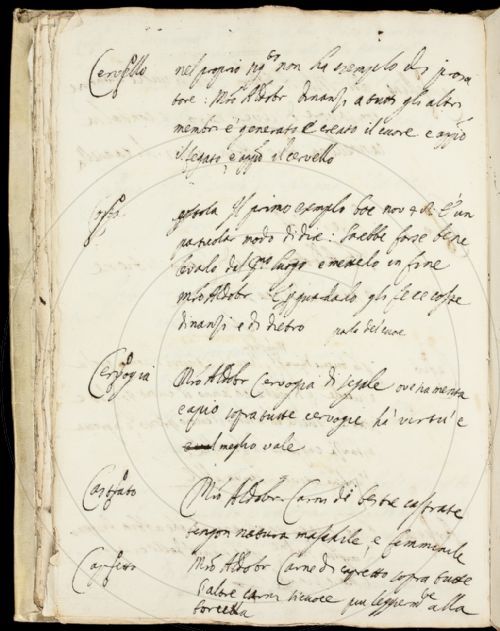 Cervello nel proprio sig.to non ha esempio di prosa
tore: M.ro Aldobr dinanzi a tutti gli altri
membri è generato e creato il cuore e app.o
il fegato, e app.o il cervello
Il primo esempio boc nov è un
particolar modo di dire: sarebbe forse bene
levalo del p.mo luogo e metterlo in fine
M.ro Aldobr gli fece coste
dinanzi e di dietro
Cervogia M.ro Aldobr Cervogia di segale ove ha menta
e apio sopra tutte cervogie ha virtu e
meglio vale
Castrato M.ro Aldobr Carni di bestie castrate
tengon natura maschile, e femminile
Capretto M.ro Aldobr Carne di capretto sopra tutte
l'altre carni si cuoce piu leggerm.te alla
forcella